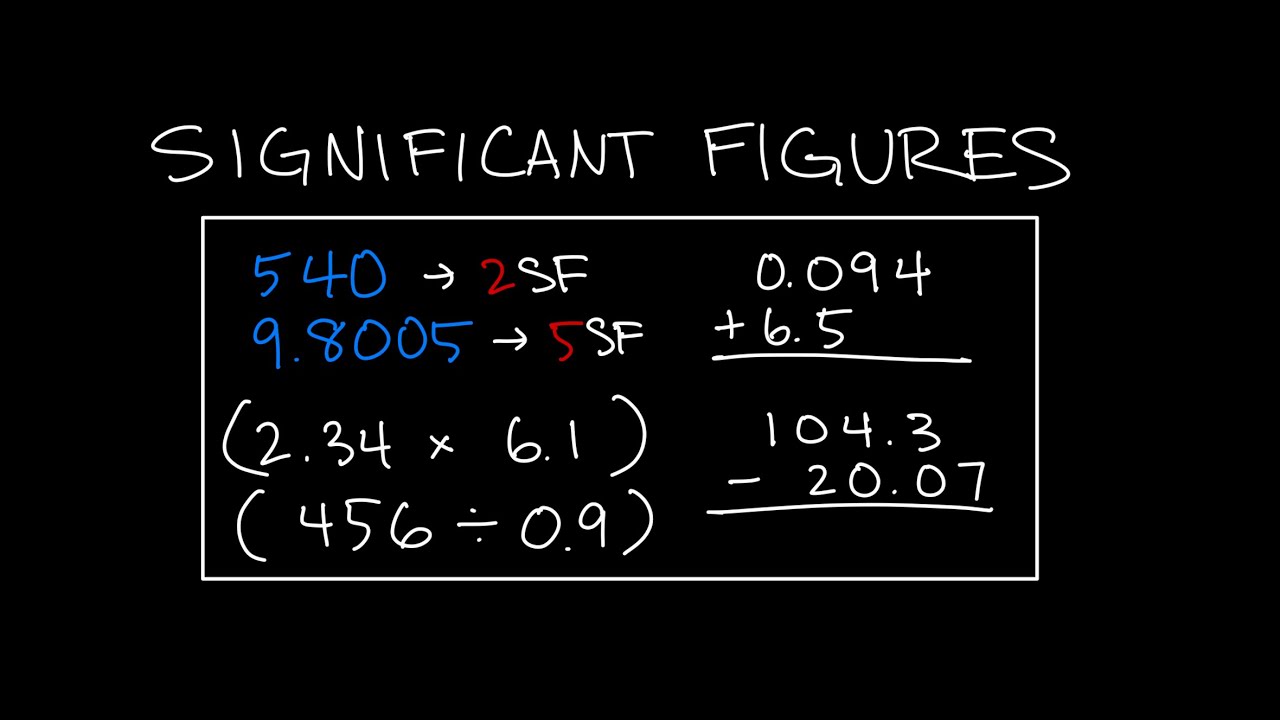 SIGNIFICANT FIGURES
540 → 2SF
9.8005 → 5SF
(2.34 × 6.1)
(456 ÷ 0.9)
0.094
+ 6.5
104.3
- 20.07